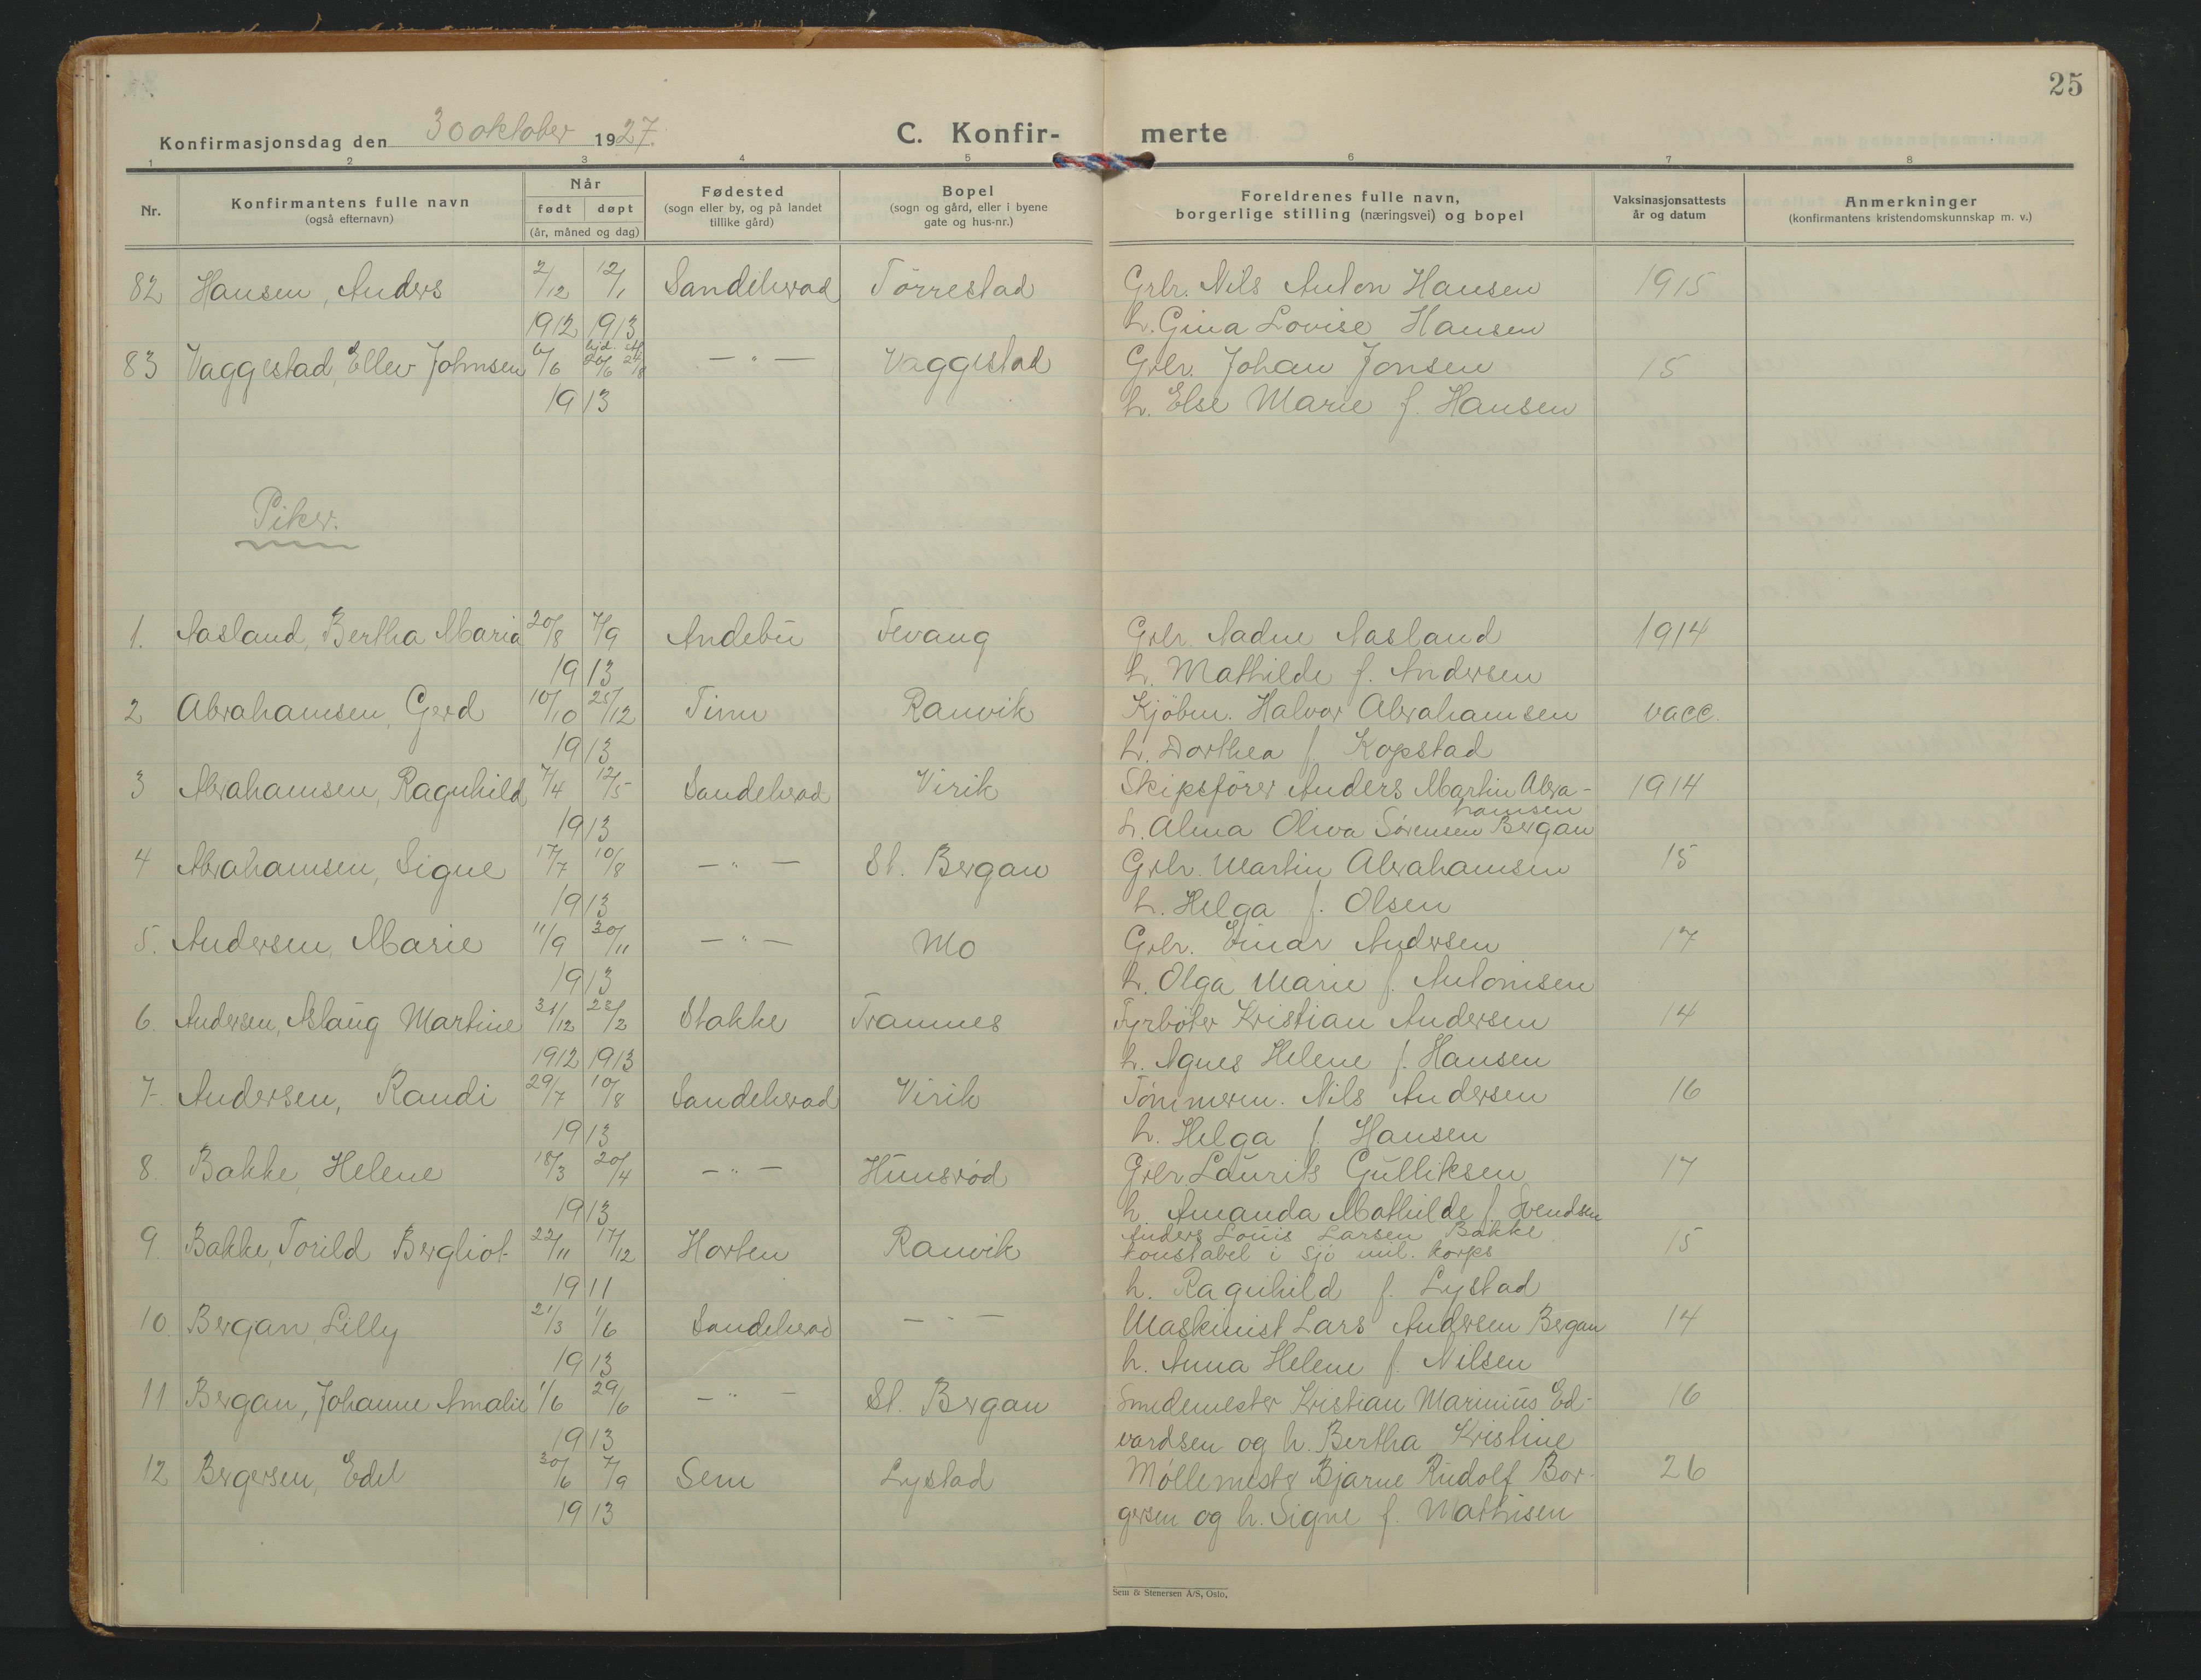 25
Konfirmasjonsdag den 30 oktober 1927.
C. Konfir- merte
1 2 3 4 5 6 7 8
Nr.
Konfirmantens fulle navn
(også efternavn)
Når
født døpt
(år, måned og dag)
Fødested
(sogn eller by, og på landet
tillike gård)
Bopel
(sogn og gård, eller i byene
gate og hus-nr.)
Foreldrenes fulle navn,
borgerlige stilling (næringsvei) og bopel
Vaksinasjonsattests
år og datum
Anmerkninger
(konfirmantens kristendomskunnskap m. v.)
82 Hansen, Anders 2/12 12/1 Sandeherad Tørrestad Grbr. Nils Anton Hansen 1915
1912 1913 h. Gina Lovise Hansen
83 Vaggestad, Ellev Johnsen 6/6 hjd. 26/6 24/8 — " — Vaggestad Grbr. Johan Jonsen 15
1913 h. Else Marie f. Hansen
Piker.
1. Aasland, Bertha Maria 20/8 7/9 Andebu Fevang Grbr. Aadne Aasland 1914
1913 h. Mathilde f. Andersen
2 Abrahamsen, Gerd 10/10 25/12 Tinn Ranvik Kjøbm. Halvor Abrahamsen vacc.
1913 h. Dorthea f. Kopstad
3 Abrahamsen, Ragnhild 7/4 12/5 Sandeherad Virik Skipsfører Anders Martin Abra- 1914
hamsen
1913 h. Alma Oliva Sørensen Bergan
4 Abrahamsen, Signe 17/7 10/8 — " — St. Bergan Grbr. Martin Abrahamsen 15
1913 h. Helga f. Olsen
5. Andersen, Marie 11/9 30/11 — " — Mo Grbr. Einar Andersen 17
1913 h. Olga Marie f. Antonisen
6. Andersen, Aslaug Martine 31/12 23/2 Stokke Framnes Fyrbøter Kristian Andersen 14
1912 1913 h. Agnes Helene f. Hansen
7. Andersen, Randi 29/7 10/8 Sandeherad Virik Tømmerm. Nils Andersen 16
1913 h. Helga f. Hansen
8. Bakke, Helene 18/3 20/4 — " — Hunsrød Grbr Laurits Gulliksen 17
1913 h. Amanda Mathilde f. Svendsen
9. Bakke, Torild Bergliot 22/11 17/12 Horten Ranvik Anders Louis Larsen Bakke 15
konstabel i sjø mil. korps
1911 h. Ragnhild f. Lystad
10. Bergan, Lilly 21/3 1/6 Sandeherad — " — Maskinist Lars Andersen Bergan 14
1913 h. Anna Helene f. Nilsen
11 Bergan, Johanne Amalie 1/6 29/6 — " — St. Bergan Smedemester Kristian Marinius Ed- 16
1913 vardsen og h. Bertha Kristine
12 Bergersen, Edel 30/6 7/9 Sem Lystad Møllemester Bjarne Rudolf Bor- 26
1913 gersen og h. Signe f. Mathisen
Sem & Stenersen A/S, Oslo.